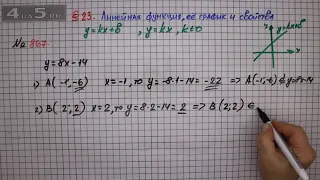 4ou5.net
§ 23. Линейная функция, её график и свойства
y=kx+b, y=kx, k≠0
y
y=kx+b
x
№ 867.
y=8x-14
1) A(-1;-6) x=-1, то y=-8·1-14=-22 => A(-1;-6)∉y=8x-14
2) B(2;2) x=2, то y=8·2-14=2 => B(2;2)∈